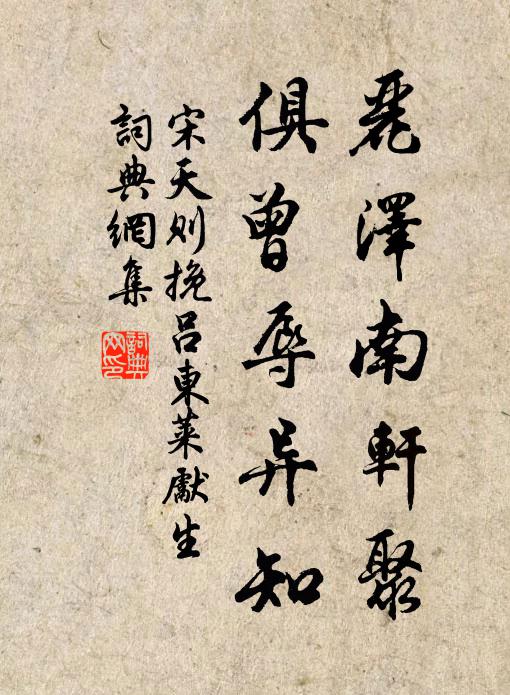 麗澤南軒聚
俱曾辱异知
宋天則挽吕東萊獻生
詞典網集
詞典網印